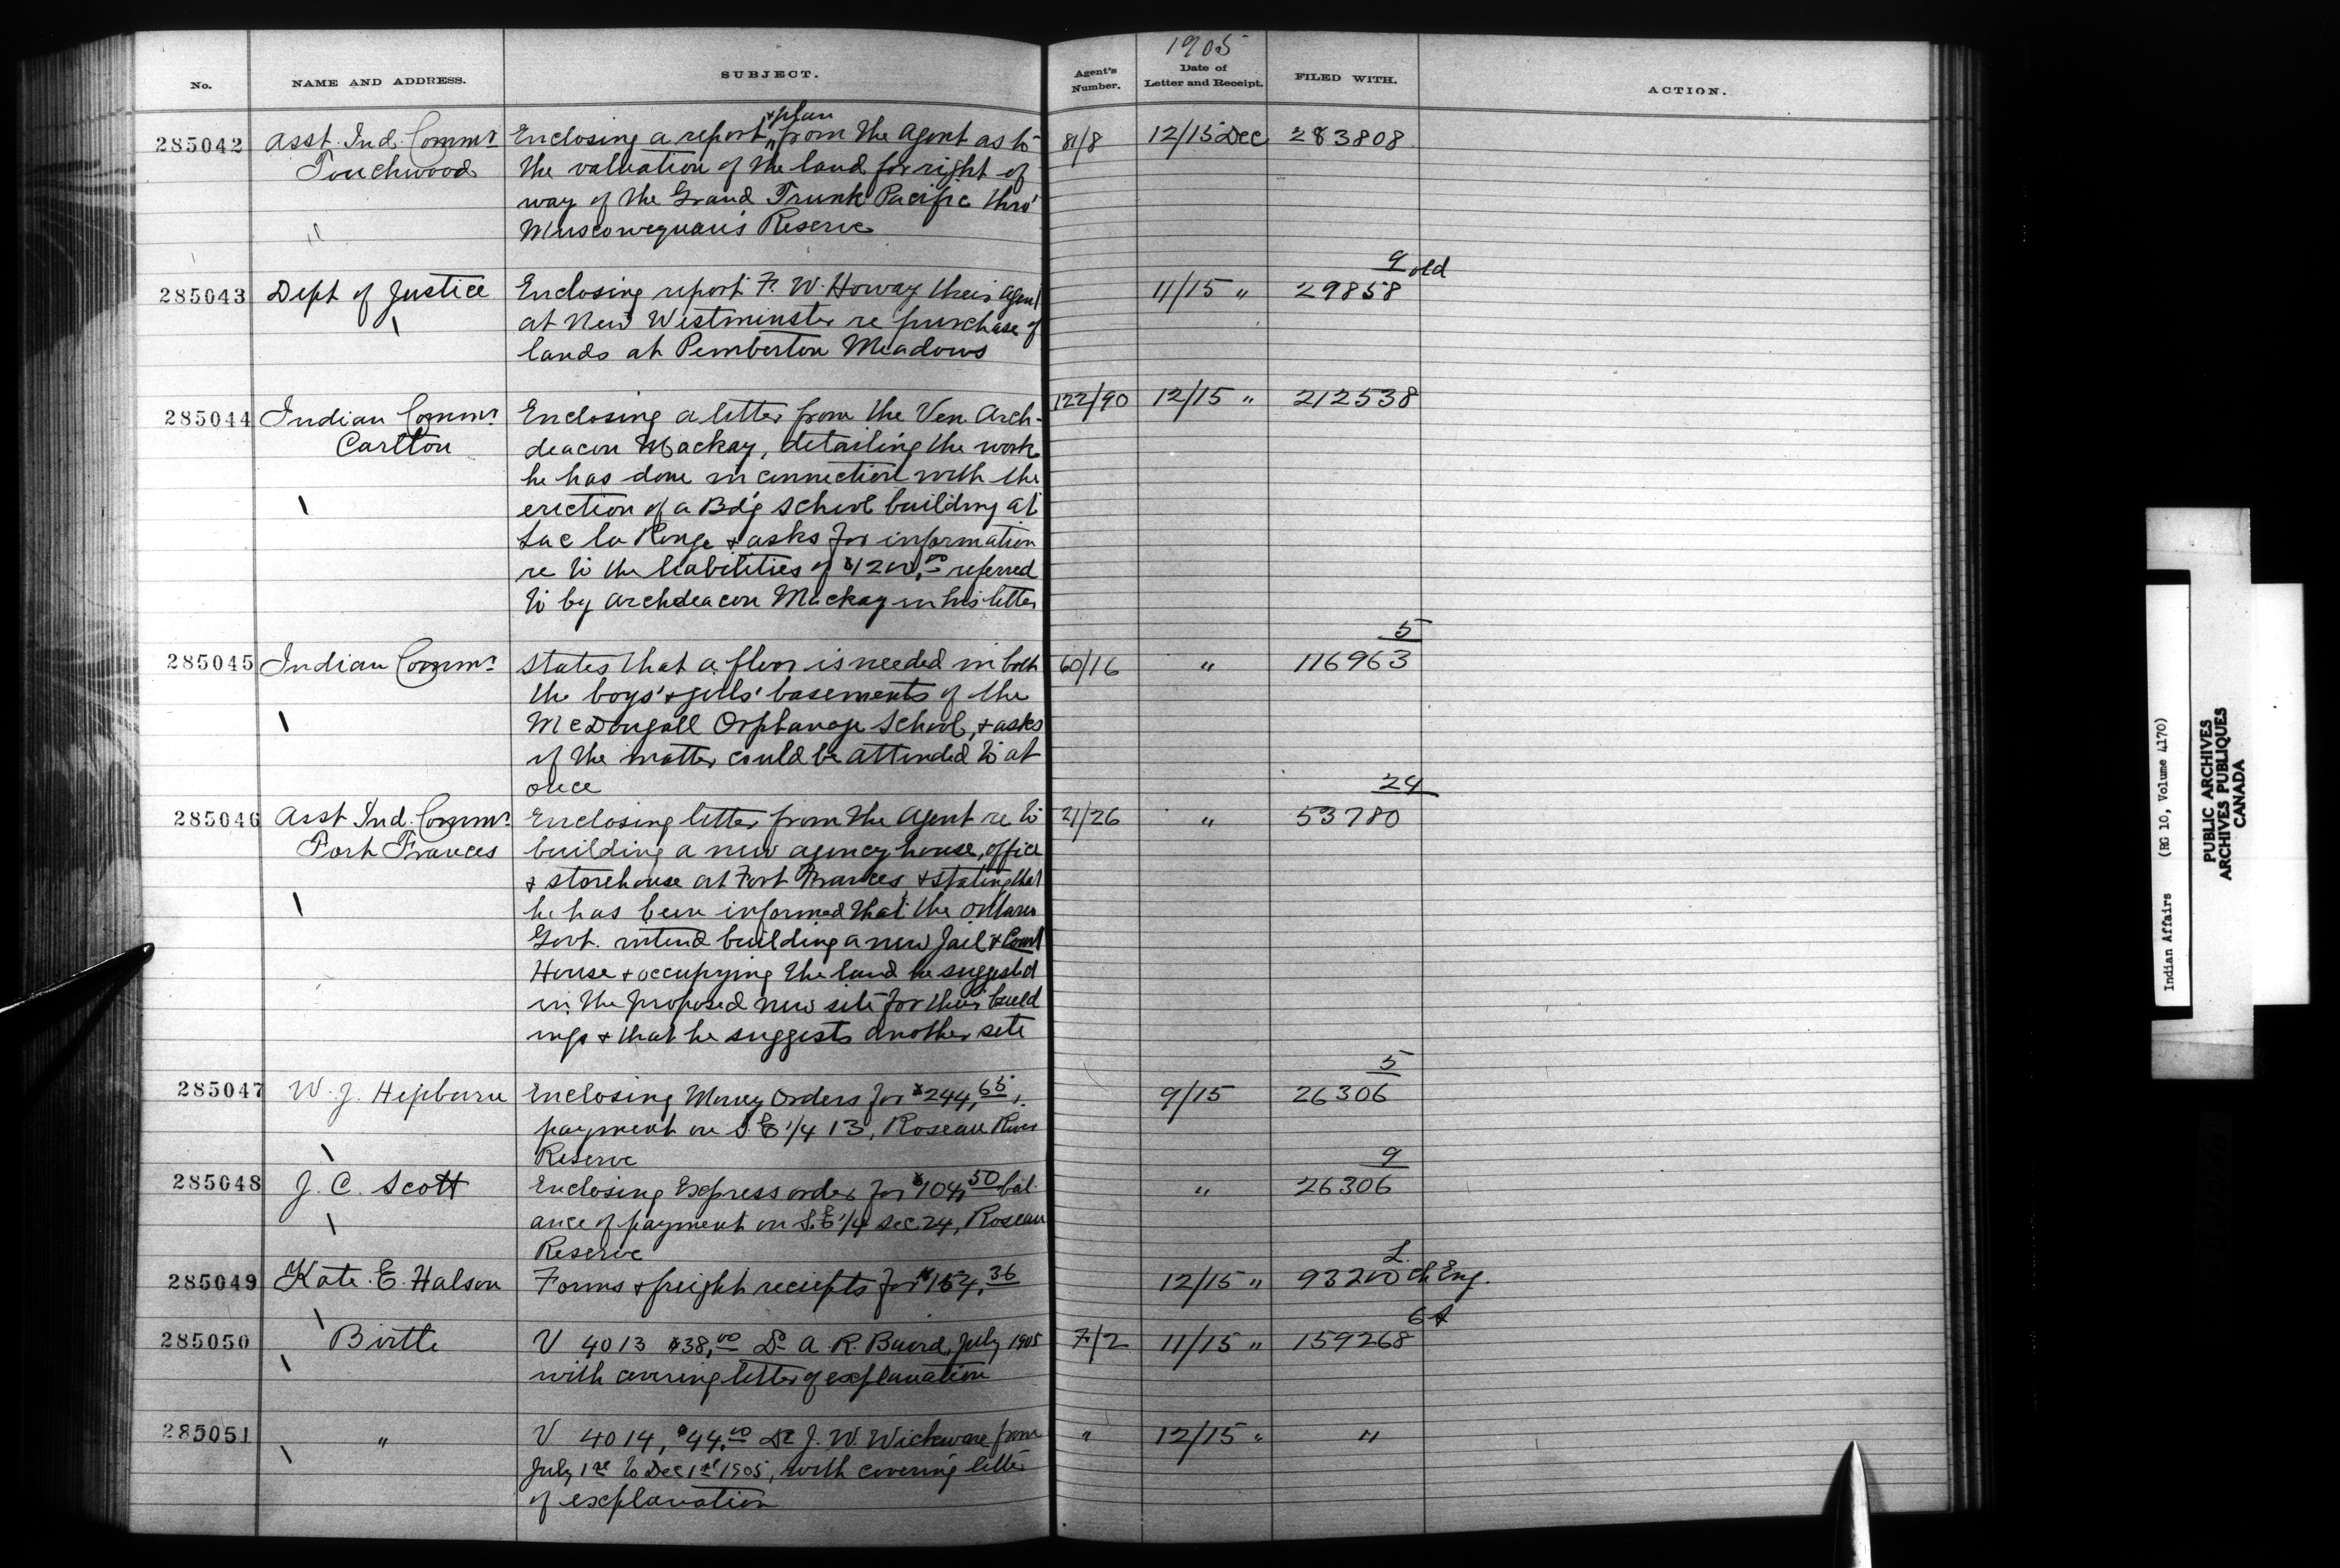 1905
No. NAME AND ADDRESS. SUBJECT. Agent's Number. Date of Letter and Receipt. FILED WITH. ACTION.
& plan
285042 Asst. Ind. Commr Enclosing a report from the Agent as to 81/8 12/15 Dec 283808
Touchwood the valuation of the land for right of
way of the Grand Trunk Pacific thro'
" Muscowequan's Reserve
9 old
285043 Dept of Justice Enclosing report F. W. Howay their Agent 11/15 " 29858
at New Westminster re purchase of
lands at Pemberton Meadows
285044 Indian Commr Enclosing a letter from the Ven. Arch- 122/90 12/15 " 212538
Carlton deacon Mackay, detailing the work
he has done in connection with the
erection of a Bd'g School building at
Lac la Ronge & asks for information
re to the liabilities of $1200.00 referred
to by Archdeacon Mackay in his letter
5
285045 Indian Commr States that a floor is needed in both 60/16 " 116963
the boys' & girls' basements of the
McDougall Orphanage School, & asks
if the matter could be attended to at
once
24
285046 Asst Ind. Commr Enclosing letter from the Agent re to 21/26 " 53780
Fort Frances building a new agency house, office
& storehouse at Fort Frances, & stating that
he has been informed that the Ontario
Govt. intend building a new Jail & Court
House & occupying the land he suggested
in the proposed new site for their build
ings & that he suggests another site
5
285047 W. J. Hepburn Enclosing Money Orders for $244.65, 9/15 26306
payment on S.E 1/4 13, Roseau River
Reserve
9
285048 J. C. Scott Enclosing Express order for $104.50 bal- " 26306
ance of payment on S.E 1/4 sec 24, Roseau
Reserve
L.
285049 Kate. E. Halson Forms & freight receipts for $154.36 12/15 " 93200 Ch Eng.
285050 Birtle V 4013 $38.00 Dr A. R. Baird, July 1905 7/2 11/15 " 159268
with covering letter of explanation
285051 " V 4014, $44.00 Dr J. W. Wickware from " 12/15 " "
July 1st to Dec 1st 1905, with covering letter
of explanation
Indian Affairs (RG 10, Volume 4170)
PUBLIC ARCHIVES
ARCHIVES PUBLIQUES
CANADA